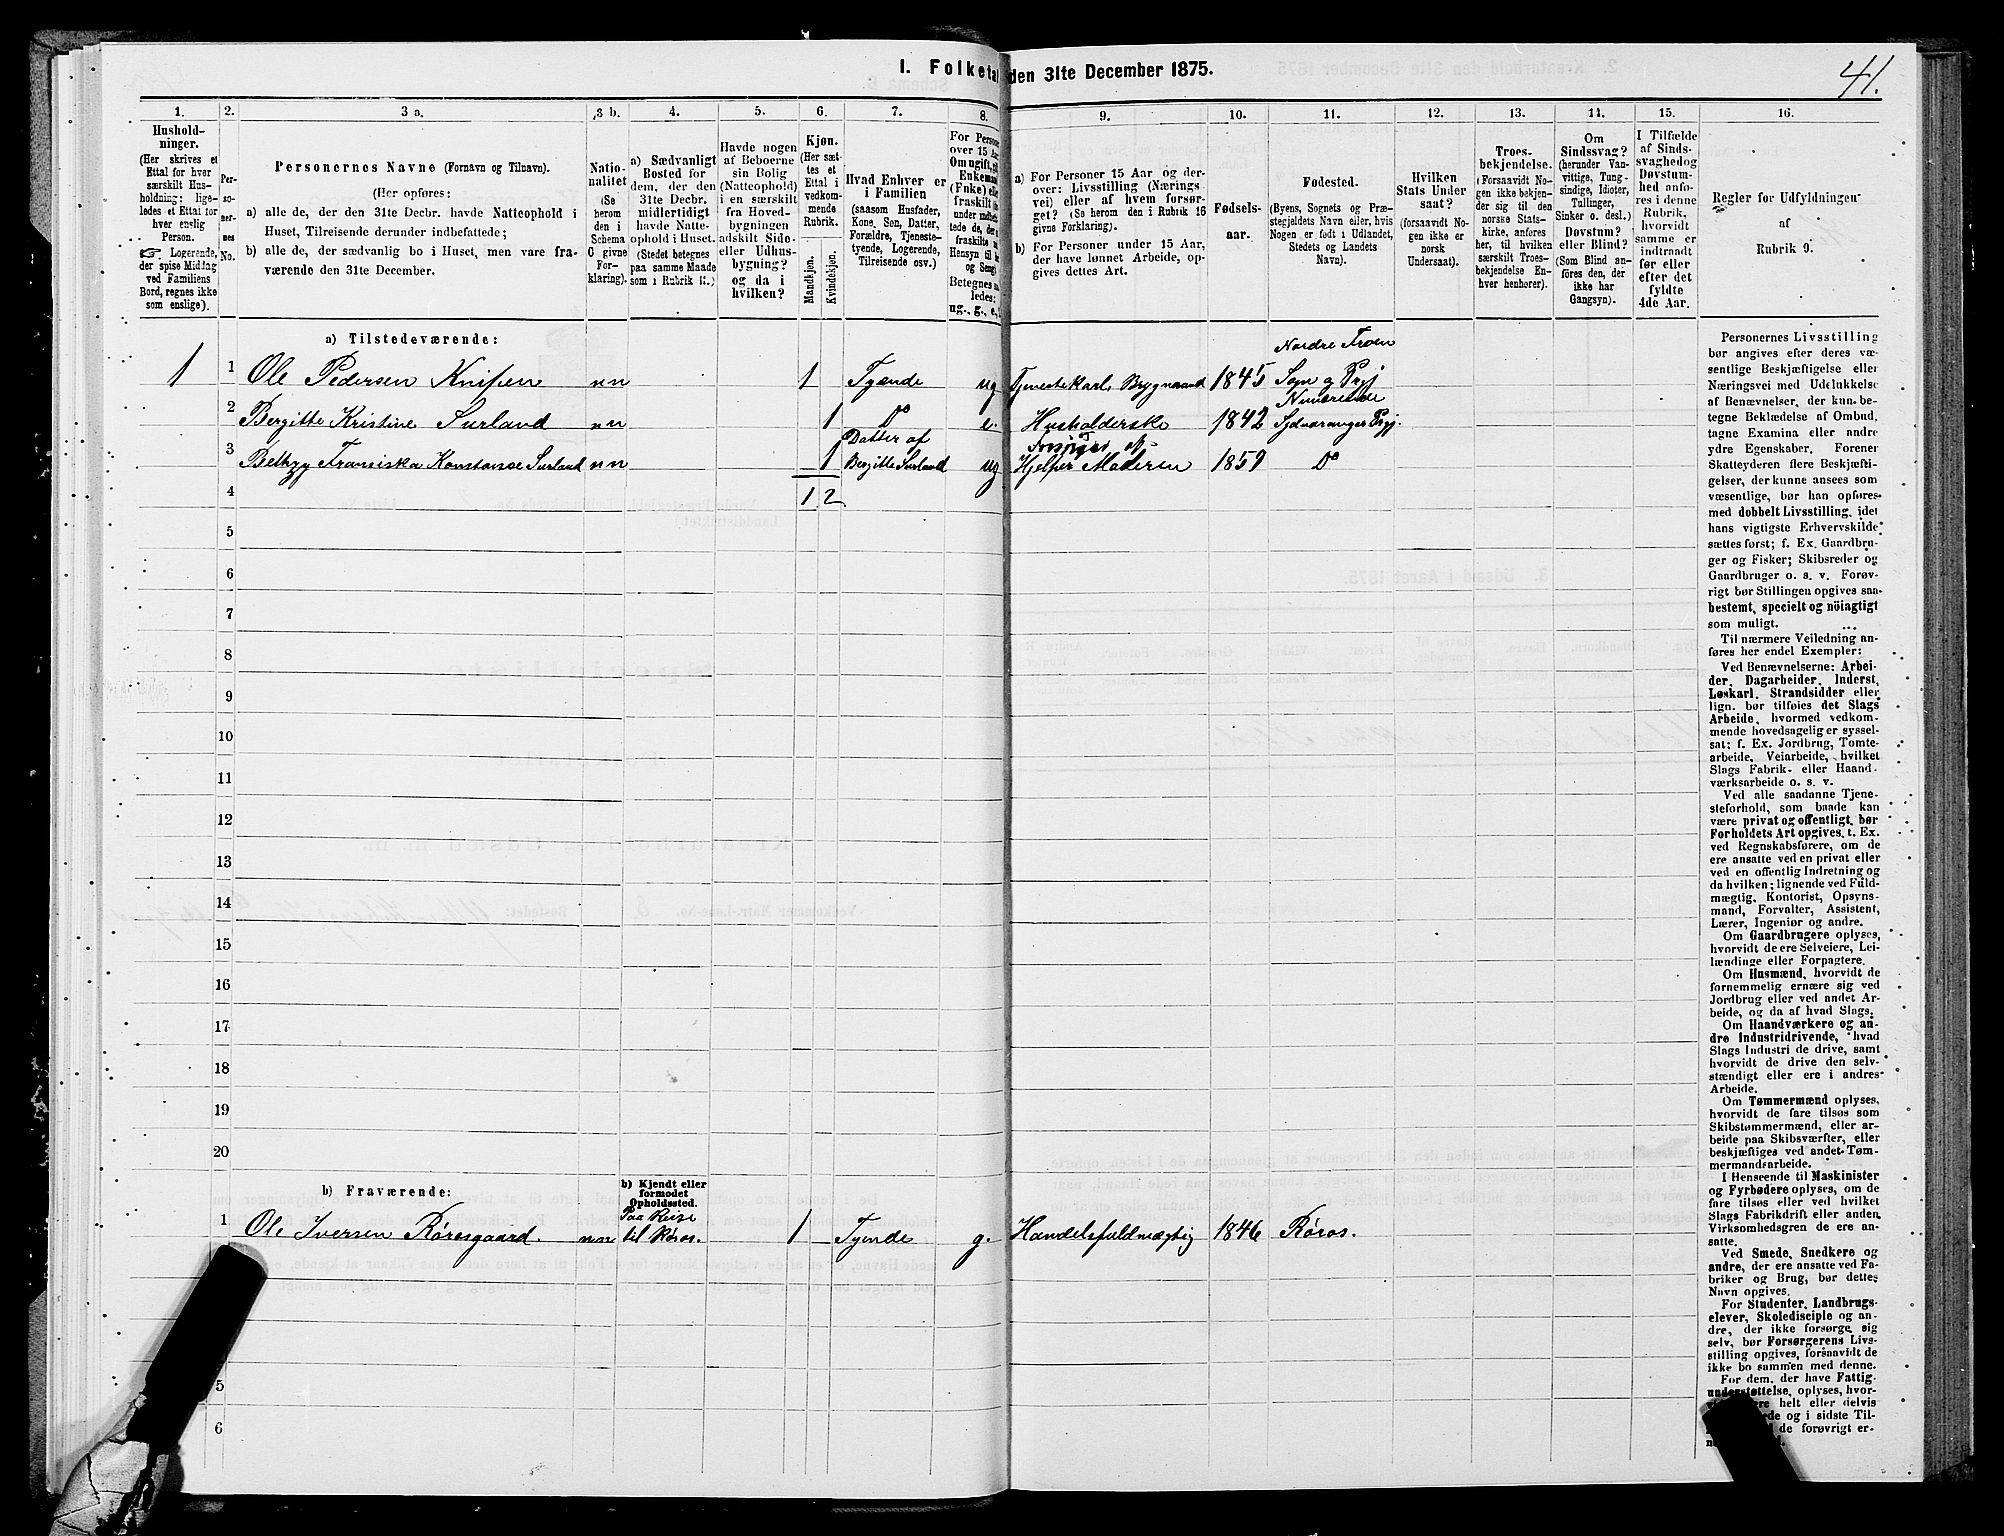 I. Folketal den 31te December 1875.
41.
1.
Hushold-
ninger.
(Her skrives et
Ettal for hver
særskilt Hus-
holdning; lige-
ledes et Ettal for
hver enslig
Person.
Logerende,
der spise Middag
ved Familiens
Bord, regnes ikke
som enslige).
2.
Per-
so-
ner-
nes
No.
3 a.
Personernes Navne (Fornavn og Tilnavn).
(Her opføres:
a) alle de, der den 31te Decbr. havde Natteophold i
Huset, Tilreisende derunder indbefattede;
b) alle de, der sædvanlig bo i Huset, men vare fra-
værende den 31te December.
3 b.
Natio-
nalitet
(Se
herom
den i
Schema
6 givne
For-
klaring).
4.
a) Sædvanligt
Bosted for
dem, der den
31te Decbr.
midlertidigt
havde Natte-
ophold i Huset.
(Stedet betegnes
paa samme Maade
som i Rubrik 11.)
5.
Havde nogen
af Beboerne
sin Bolig
(Natteophold)
i en særskilt
fra Hoved-
bygningen
adskilt Side-
eller Udhus-
bygning?
og da i
hvilken?
6.
Kjøn.
(Her sæt-
tes et
Ettal i
vedkom-
mende
Rubrik.
Mandkjøn.
Kvindekjøn.
7.
Hvad Enhver er
i Familien
(saasom Husfader,
Kone, Søn, Datter,
Forældre, Tjeneste-
tyende, Logerende,
Tilreisende osv.)
8.
For Person
over 15 Aar
Om ugift, gi
Enkemand
(Enke) eller
fraskilt
Betegnes
ledes:
ug., g., e.,
9.
a) For Personer 15 Aar og der-
over: Livsstilling (Nærings
vei) eller af hvem forsør-
get? (Se herom den i Rubrik 16
givne Forklaring).
b) For Personer under 15 Aar,
der have lønnet Arbeide, op-
gives dettes Art.
10.
Fødsels-
aar.
11.
Fødested.
(Byens, Sognets og Præ-
stegjeldets Navn eller, hvis
Nogen er født i Udlandet,
Stedets og Landets
Navn).
12.
Hvilken
Stats Under
saat?
(forsaavidt No-
gen ikke er
norsk
Undersaat).
13.
Troes-
bekjendelse.
(Forsaavidt No-
gen ikke bekjen-
der sig til den
norske Stats-
kirke, anføres
her, til hvilken
særskilt Troes-
bekjendelse En-
hver henhører).
14.
Om
Sindssvag?
(herunder Van-
vittige, Tung-
sindige, Idioter,
Tullinger,
Sinker o. desl.)
Døvstum?
eller Blind?
(Som Blind an-
føres den, der
ikke har
Gangsyn).
15.
I Tilfælde
af Sinds-
svaghed og
Døvstum-
hed anfø-
res i denne
Rubrik,
hvorvidt
samme er
indtraadt
før eller
efter det
fyldte
4de Aar.
16.
Regler for Udfyldningen
af
Rubrik 9.
a) Tilstedeværende:
Nordre Froen
1 1 Ole Pedersen Knipen nn 1 Tyende ug Tjenestekarl, Brygmand 1845 Sogn og Prgj
Nuværende
2 Bergitte Kristine Surland nn 1 Do e. Husholderske 1842 Sydvaranger Prgj.
Datter af Forsørges af
3 Bethzy Franciska Konstanse Surland nn 1 Bergitte Surland ug Hjelper Moderen 1857 Do
4 1 2
5
6
7
8
9
10
11
12
13
14
15
16
17
18
19
20
b) Fraværende:
b) Kjendt eller
formodet
Opholdssted.
Paa Reise
1 Ole Iversen Rørosgaard. nn til Røros. 1 Tyende g. Handelsfuldmægtig 1846 Røros.
5
6
Personernes Livsstilling
bør angives efter deres væ-
sentlige Beskjæftigelse eller
Næringsvei med Udelukkelse
af Benævnelser, der kun be-
tegne Beklædelse af Ombud,
tagne Examina eller andre
ydre Egenskaber. Forener
Skatteyderen flere Beskjæfti-
gelser, der kunne ansees som
væsentlige, bør han opføres
med dobbelt Livsstilling, idet
hans vigtigste Erhvervskilde
sættes først; f. Ex. Gaardbru-
ger og Fisker; Skibsreder og
Gaardbruger o. s. v. Forøv-
rigt bør Stillingen opgives saa
bestemt, specielt og nöiagtigt
som muligt.
Til nærmere Veiledning an-
føres her endel Exempler:
Ved Benævnelserne: Arbei-
der, Dagarbeider, Inderst,
Løskarl, Strandsidder eller
lign. bør tilføies det Slags
Arbeide, hvormed vedkom-
mende hovedsagelig er syssel-
sat; f. Ex. Jordbrug, Tomte-
arbeide, Veiarbeide, hvilket
Slags Fabrik- eller Haand-
værksarbeide o. s. v.
Ved alle saadanne Tjene-
steforhold, som baade kan
være privat og offentligt, bør
Forholdets Art opgives, t. Ex.
ved Regnskabsførere, om de
ere ansatte ved en privat eller
ved en offentlig Indretning og
da hvilken; lignende ved Fuld-
mægtig, Kontorist, Opsyns-
mand, Forvalter, Assistent,
Lærer, Ingeniør og andre.
Om Gaardbrugere oplyses,
hvorvidt de ere Selveiere, Lei-
lændinge eller Forpagtere.
Om Husmænd, hvorvidt de
fornemmelig ernære sig ved
Jordbrug eller ved andet Ar-
beide, og da af hvad Slags.
Om Haandværkere og an-
dre Industridrivende, hvad
Slags Industri de drive, samt
hvorvidt de drive den selv-
stændigt eller ere i andres
Arbeide.
Om Tømmermænd oplyses,
hvorvidt de fare tilsøs som
Skibstømmermænd, eller ar-
beide paa Skibsværfter, eller
beskjæftiges ved andet Tøm-
mermandsarbeide.
I Henseende til Maskinister
og Fyrbødere oplyses, om de
fare tilsøs eller ved hvilket
Slags Fabrikdrift eller anden
Virksomhedsgren de ere an-
satte.
Ved Smede, Snedkere og
andre, der ere ansatte ved Fa-
briker og Brug, bør dettes
Navn opgives.
For Studenter, Landbrugs-
elever, Skoledisciple og an-
dre, der ikke forsørge sig
selv, bør Forsørgerens Livs-
stilling opgives, forsaavidt de
ikke bo sammen med denne.
For dem, der have Fattig-
understøttelse, oplyses, hvor-
helt eller delvis
og i sidste Til-
de forøvrigt er-